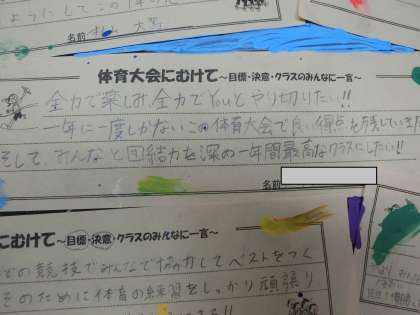 ようにしてこの
名前
体育大会にむけて ～目標・決意・クラスのみんなに一言～
全力で楽しみ、全力でYouとやり切りたい!!
一年に一度しかないこの体育大会で良い得点を残していきた
そして、みんなと団結力を深め一年間最高なクラスにしたい!!
名前
にむけて ～目標・決意・クラスのみんなに一言～
どの競技でみんなで協力してベストをつく
そのために体育の練習をしっかり頑張り